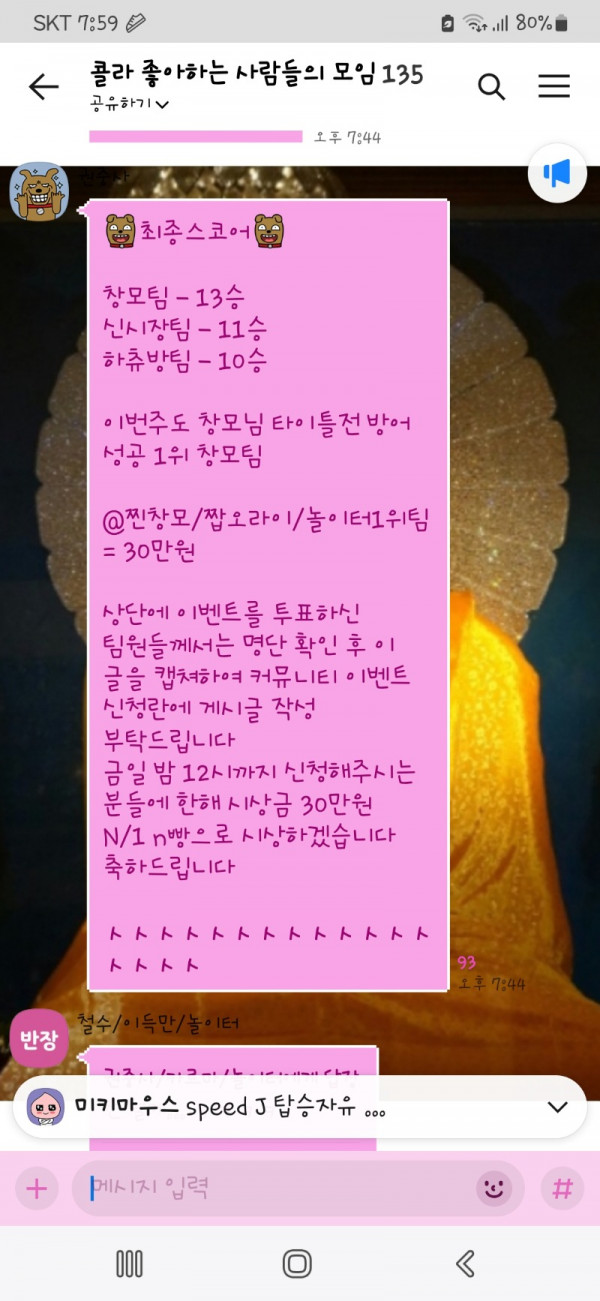 SKT 7:59
80%
콜라 좋아하는 사람들의 모임 135
공유하기
오후 7:44
최종스코어
창모팀 - 13승
신시장팀 - 11승
하츄방팀 - 10승
이번주도 창모님 타이틀전 방어
성공 1위 창모팀
@찐창모/짭오라이/놀이터1위팀
= 30만원
상단에 이벤트를 투표하신
팀원들께서는 명단 확인 후 이
글을 캡쳐하여 커뮤니티 이벤트
신청란에 게시글 작성
부탁드립니다
금일 밤 12시까지 신청해주시는
분들에 한해 시상금 30만원
N/1 n빵으로 시상하겠습니다
축하드립니다
ㅅㅅㅅㅅㅅㅅㅅㅅㅅㅅㅅㅅㅅ
ㅅㅅㅅㅅ
93
오후 7:44
반장
철수/이득만/놀이터
미키마우스 speed J 탑승자유 ...
메시지 입력
#